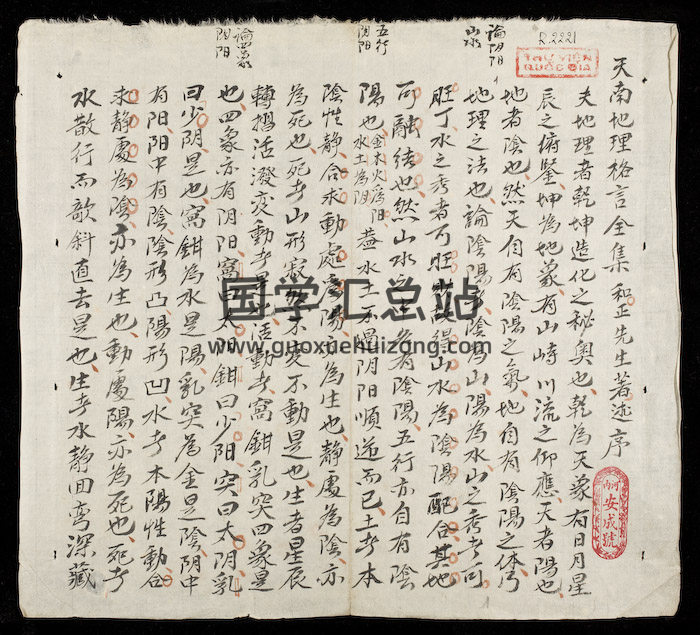 R.2221
THƯ VIỆN
QUỐC GIA
論阴阳
山水
五行
阴阳
論四象
阴阳
天南地理格言全集 和正先生著述序
夫地理者乾坤造化之秘奥也乾為天象有日月星
辰之俯鑒坤為地象有山峙川流之仰應天者陽也
地者陰也然天自有陰陽之氣地自有陰陽之体乃
地理之法也論陰陽 陰為山陽為水山之秀者可
旺丁水之秀者可旺 得山水為陰陽配合其地
可融結也然山水之 各有陰陽五行亦自有陰
陽也金木火為阳水土為阴盖水土 阴阳順逆而已土者本
陰性静合求動處 陽 為生也静處為陰亦
為死也死者山形寂 不变不動是也生者星辰
轉摺活潑变動者是 活動者窩鉗乳突四象是
也四象亦有阴阳窩曰太阳鉗曰少阳突曰太阴乳
曰少阴是也窩鉗為水是陽乳突為金是陰阴中
有阳阳中有陰陰形凸陽形凹水者本陽性動合
求静處為陰亦為生也動處陽亦為死也死者
水散行而欹斜直去是也生者水静回弯深藏
河内
安成號
国学汇总站
www.guoxuehuizong.com